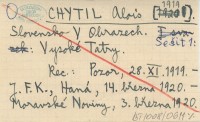 O CHYTIL Alois [1919
1920]
Slovensko V Obrazech. I. série
Sešit 1:
sek: Vysoké Tatry.
Rec.: Pozor, 28. XI. 1919. -
J. F. K., Haná, 14. března 1920. -
Moravské Noviny, 3. března 1920. -